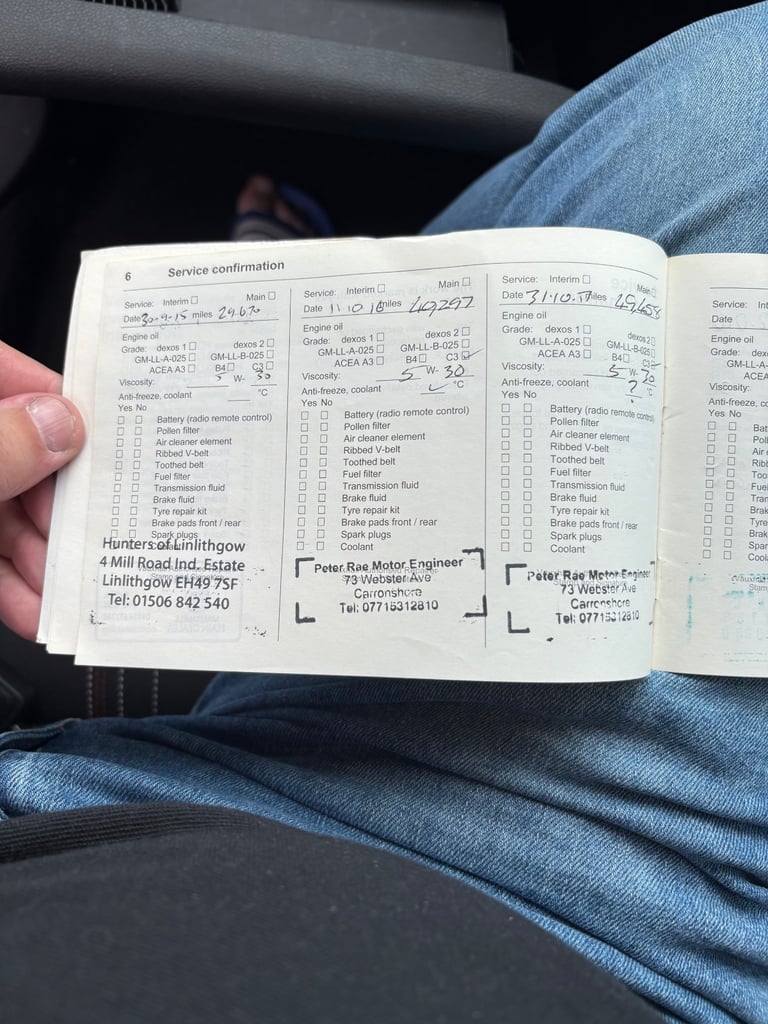 6 Service confirmation
Service: Interim ☐ Main ☐
Date 30-9-15 miles 29.670
Engine oil
Grade: dexos 1 ☐ dexos 2 ☐
GM-LL-A-025 ☐ GM-LL-B-025 ☐
ACEA A3 ☐ B4 ☐ C3 ☐
Viscosity: 5 W- 30
Anti-freeze, coolant °C
Yes No
☐ ☐ Battery (radio remote control)
☐ ☐ Pollen filter
☐ ☐ Air cleaner element
☐ ☐ Ribbed V-belt
☐ ☐ Toothed belt
☐ ☐ Fuel filter
☐ ☐ Transmission fluid
☐ ☐ Brake fluid
☐ ☐ Tyre repair kit
☐ ☐ Brake pads front / rear
☐ ☐ Spark plugs
Hunters of Linlithgow
4 Mill Road Ind. Estate
Linlithgow EH49 7SF
Tel: 01506 842 540
Service: Interim ☐ Main ☐
Date 11 10 16 miles 40,297
Engine oil
Grade: dexos 1 ☐ dexos 2 ☐
GM-LL-A-025 ☐ GM-LL-B-025 ☐
ACEA A3 ☐ B4 ☐ C3 ☑
Viscosity: 5 W- 30
Anti-freeze, coolant ✓ °C
Yes No
☐ ☐ Battery (radio remote control)
☐ ☐ Pollen filter
☐ ☐ Air cleaner element
☐ ☐ Ribbed V-belt
☐ ☐ Toothed belt
☐ ☐ Fuel filter
☐ ☐ Transmission fluid
☐ ☐ Brake fluid
☐ ☐ Tyre repair kit
☐ ☐ Brake pads front / rear
☐ ☐ Spark plugs
☐ ☐ Coolant
Peter Rae Motor Engineer
73 Webster Ave
Carronshore
Tel: 07715312810
Service: Interim ☐ Main ☐
Date 31.10.17 miles
Engine oil
Grade: dexos 1 ☐ dexos 2 ☐
GM-LL-A-025 ☐ GM-LL-B-025 ☐
ACEA A3 ☐ B4 ☐ C3 ☑
Viscosity: 5 W- 30
Anti-freeze, coolant ? °C
Yes No
☐ ☐ Battery (radio remote control)
☐ ☐ Pollen filter
☐ ☐ Air cleaner element
☐ ☐ Ribbed V-belt
☐ ☐ Toothed belt
☐ ☐ Fuel filter
☐ ☐ Transmission fluid
☐ ☐ Brake fluid
☐ ☐ Tyre repair kit
☐ ☐ Brake pads front / rear
☐ ☐ Spark plugs
☐ ☐ Coolant
Peter Rae Motor Engineer
73 Webster Ave
Carronshore
Tel: 07715312810
Service:
Date
Engine oil
Grade:
Viscosity:
Anti-freeze,
Yes No